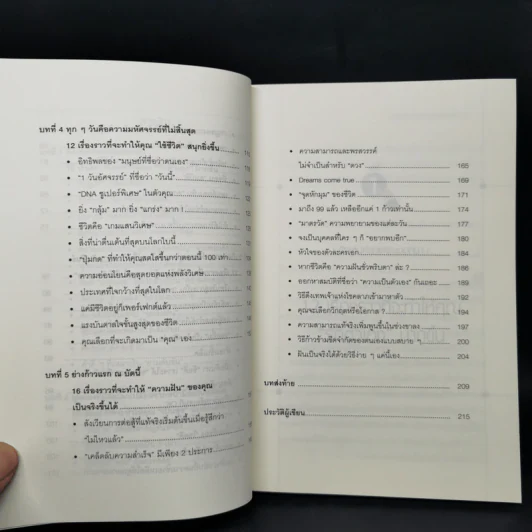 บทที่ 4 ทุก ๆ วันคือความมหัศจรรย์ที่ไม่สิ้นสุด
12 เรื่องราวที่จะทำให้คุณ "ใช้ชีวิต" สนุกยิ่งขึ้น
• อิทธิพลของ "มนุษย์ที่ชื่อว่าตนเอง"
• "1 วันอัศจรรย์" ที่ชื่อว่า "วันนี้"
• "DNA ซูเปอร์พิเศษ" ในตัวคุณ
• ยิ่ง "กลุ้ม" มาก ยิ่ง "แกร่ง" มาก !
• ชีวิตคือ "เกมแสนวิเศษ"
• สิ่งที่น่าตื่นเต้นที่สุดบนโลกใบนี้
• "ปุ่มกด" ที่ทำให้คุณสดใสขึ้นกว่าตอนนี้ 100 เท่า
• ความอ่อนโยนคือสุดยอดแห่งพลังวิเศษ
• ประเทศที่ไกลกว้างที่สุดในโลก
• แค่มีชีวิตอยู่ก็เพอร์เฟกต์แล้ว
• แรงบันดาลใจชั้นสูงสุดของชีวิต
• คุณเลือกที่จะเกิดมาเป็น "คุณ" เอง
บทที่ 5 ย่างก้าวแรก ณ บัดนี้
16 เรื่องราวที่จะทำให้ "ความฝัน" ของคุณ
เป็นจริงขึ้นได้
• สังเวียนการต่อสู้ที่แท้จริงเริ่มต้นขึ้นเมื่อรู้สึกว่า
"ไม่ไหวแล้ว"
• "เคล็ดลับความสำเร็จ" มีเพียง 2 ประการ
• ความสามารถและพรสวรรค์
ไม่จำเป็นสำหรับ "ดวง" 165
• Dreams come true 169
• "จุดหักมุม" ของชีวิต 171
• มาถึง 99 แล้ว เหลืออีกแค่ 1 ก้าวเท่านั้น 174
• "มาตรวัด" ความพยายามของแต่ละวัน 177
• จงเป็นบุคคลที่ใคร ๆ ก็ "อยากพบอีก" 180
• หัวใจของตัวละครเอก 183
• หากชีวิตคือ "ความฝันชั่วพริบตา" ล่ะ ? 186
• ออกหาสมบัติที่ชื่อว่า "ความเป็นตัวเอง" กันเถอะ 189
• วิธีดึงเทพเจ้าแห่งโชคลาภเข้ามาหาตัว 192
• คุณจะเลือกวิกฤตหรือโอกาส ? 194
• ความสามารถแท้จริงเพิ่มพูนขึ้นในช่วงขาลง 197
• วิธีก้าวข้ามขีดจำกัดของตนเองแบบสบาย ๆ 200
• ฝันเป็นจริงได้ด้วยวิธีง่าย ๆ แค่นี้เอง 204
บทส่งท้าย 209
ประวัติผู้เขียน 215